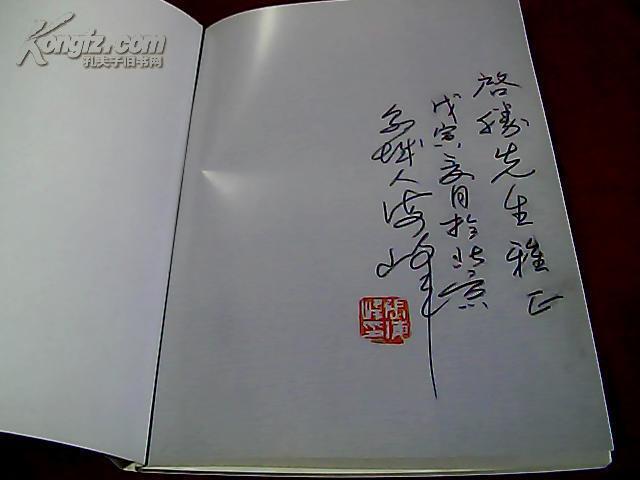 Kongfz.com
孔夫子旧书网
啓腾先生雅正
戊寅夏日於北京
人海峰